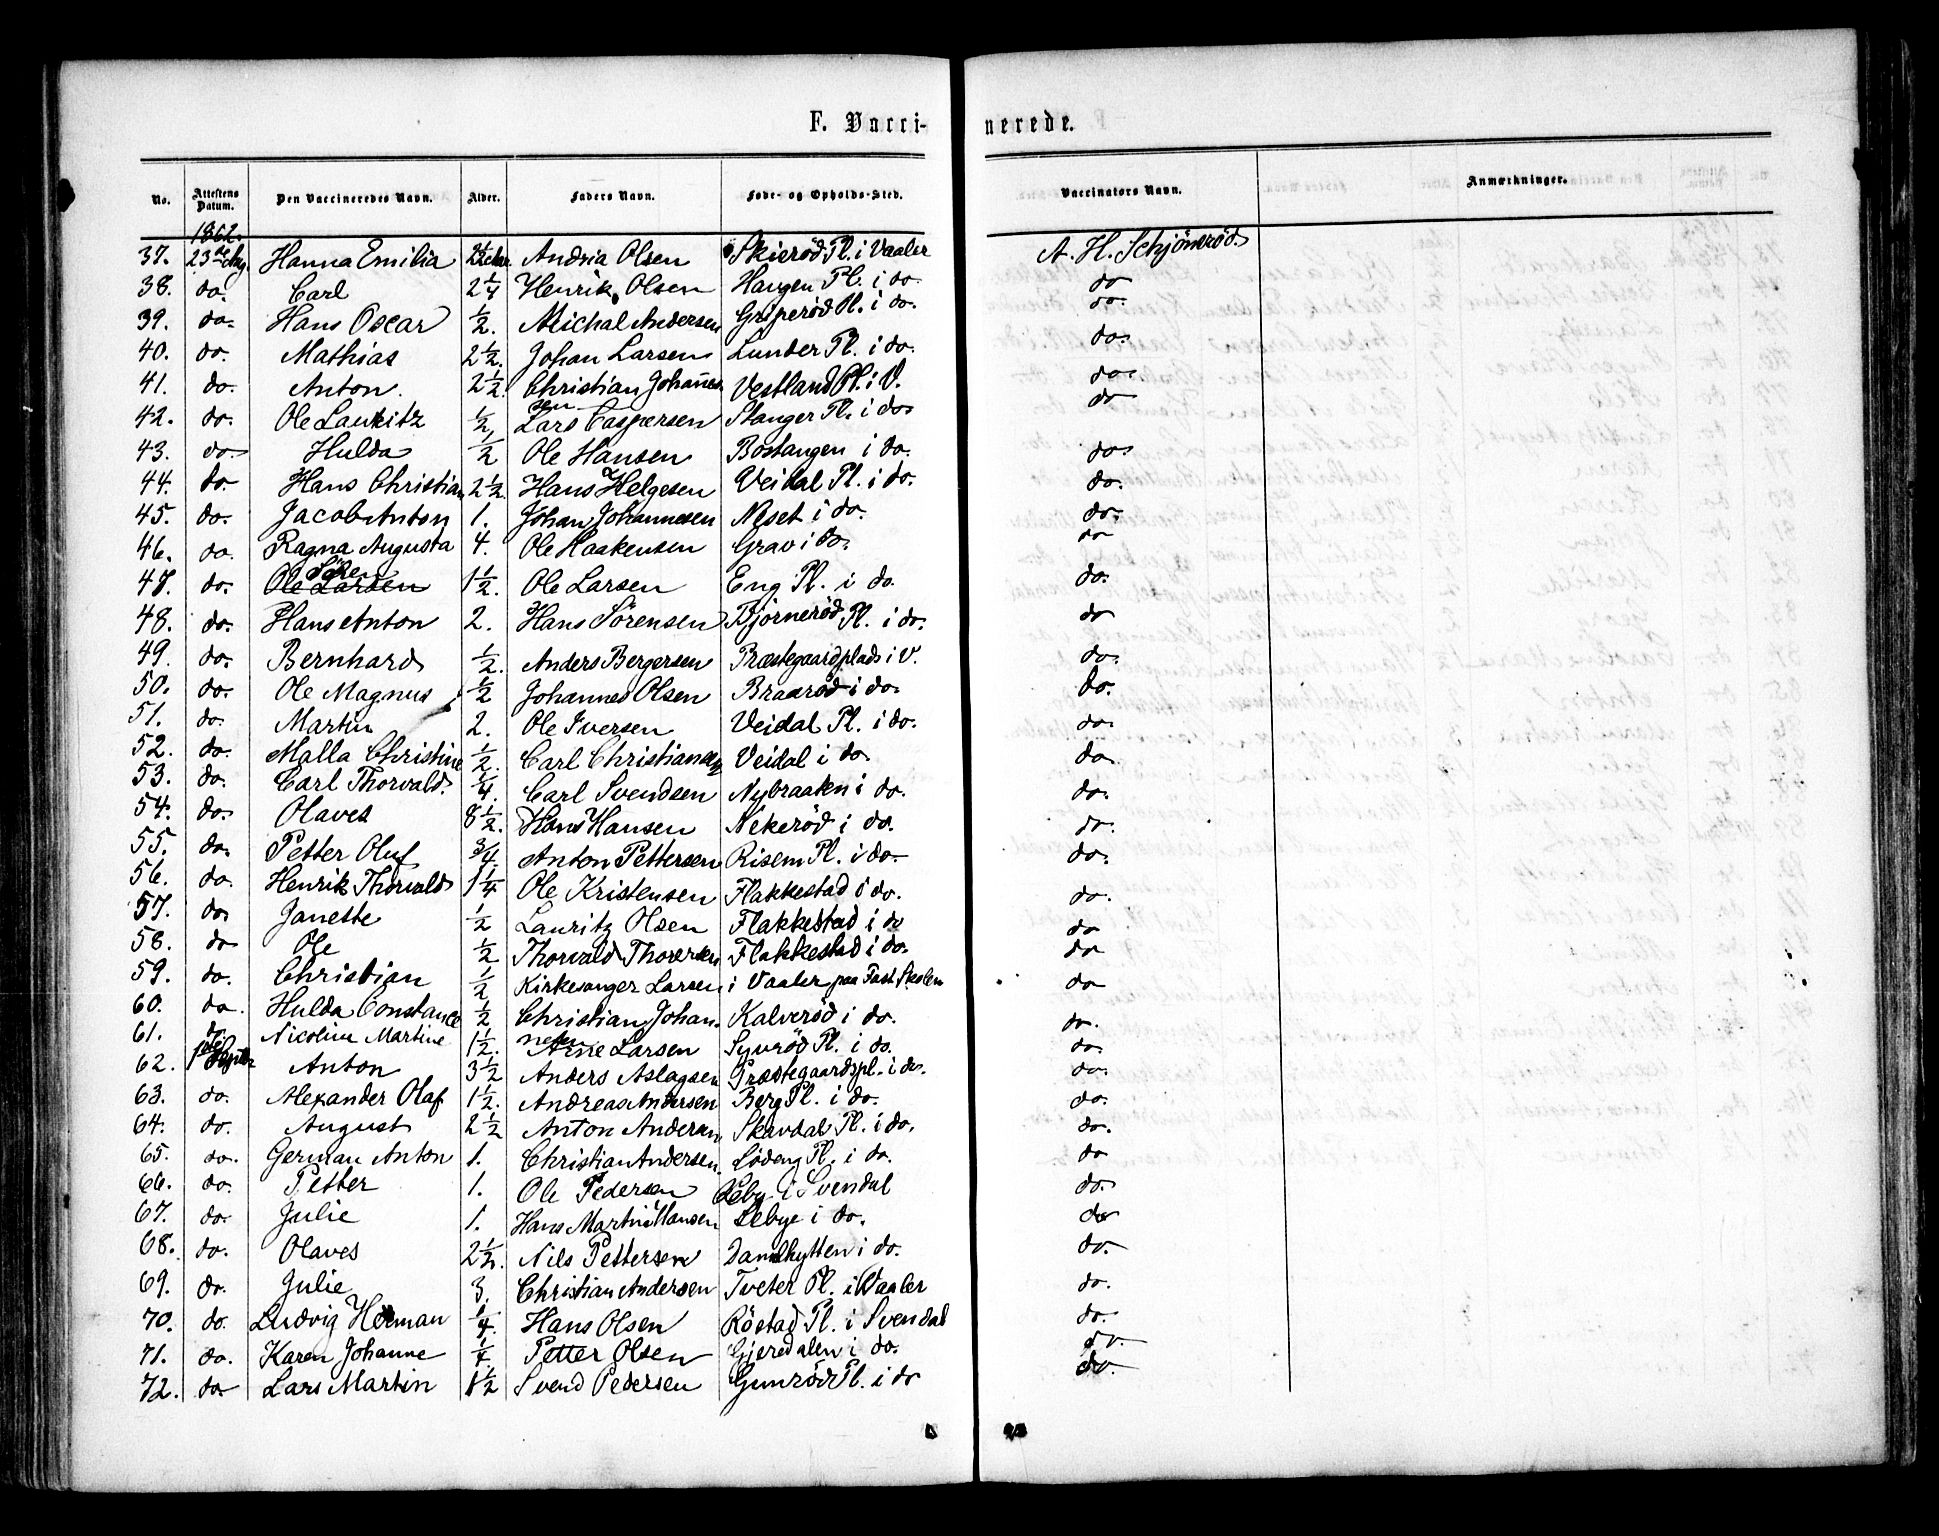 F. Vacci-nerede.
No. Attestens Datum. Den Vaccineredes Navn. Alder. Faders Navn. Føde- og Opholds-Sted. Vaccinators Navn. Anmærkninger.
1862.
37. 23de Aug Hanna Emilia 2½ Aar Andria Olsen Skieröd Pl. i Vaaler A. H. Schjöneröd
38. do. Carl 2¼ Henrik Olsen Haugen Pl. i do do
39. do. Hans Oscar ½. Michal Andersen Griperöd Pl. i do. do.
40. do. Mathias 2½. Johan Larsen Lunder Pl. i do. do.
41. do. Anton. 2½. Christian Johannes Vestland Pl. i V. do
sen
42. do. Ole Lauritz ½ Lars Caspersen Stanger Pl. i do do
43. do Hulda ½ Ole Hansen Bostangen i do. do.
44. do Hans Christian 2½. Hans Helgesen Veidal Pl. i do. do.
45. do. Jacob Anton 1. Johan Johannesen Neset i do. do.
46. do. Ragna Augusta 4. Ole Haakensen Grav i do. do
Sören
47. do. Ole Larsen 1½. Ole Larsen Eng Pl. i do. do.
48. do. Hans Anton 2. Hans Sörensen Bjorneröd Pl. i do. do
49. do. Bernhard ½. Anders Bergersen Præstegaardplads i V. do.
50. do. Ole Magnus ½ Johannes Olsen Braaröd i do. do.
51. do. Martin 2. Ole Iversen Veidal Pl. i do. do.
52. do. Malla Christine ½. Carl Christiansen Veidal i do. do.
53. do. Carl Thorvald. ¼. Carl Svendsen Nybraaten i do. do.
54. do. Olaves 8½. Hans Hansen Nekeröd i do. do.
55. do. Petter Oluf ¾. Anton Pettersen Risem Pl. i do. do.
56. do. Henrik Thorvald 1¼ Ole Kristensen Flakkestad i do. do.
57. do Janette ½ Lauritz Olsen Flakkestad i do do
58. do Ole ½ Thorvald Thorersen Flakkestad i do. do
59. do. Christian ½ Kirkesanger Larsen i Vaaler paa Fast Skolen do
60. do. Hulda Constance ½ Christian Johan- Kalveröd i do. do.
nesen
61. do. Nicoline Martine 1½. Arne Larsen Syvröd Pl. i do. do.
62. 1ste Septbr Anton 3½ Anders Aslagsen Præstegaardspl. i do. do.
63. do. Alexander Olaf 1½. Andreas Andersen Berg Pl. i do. do.
64. do. August 2½ Anton Andersen Skavdal Pl. i do. do.
65. do. German Anton 1. Christian Andersen. Lödeng Pl. i do. do
66. do. Petter 1. Ole Pedersen Leby i Svendal do.
67. do. Julie 1. Hans Martin Hansen Lebye i do. do
68. do. Olaves 2½. Nils Pettersen Damhytten i do. do.
69. do. Julie 3. Christian Andersen Tveter Pl. i Vaaler do.
70. do. Ludvig Herman ¼. Hans Olsen Röstad Pl. i Svendal do.
71. do. Karen Johanne ¼ Petter Olsen Gjeredalen i do. do.
72. do Lars Martin 1½ Svend Pedersen Gunröd Pl. i do do.